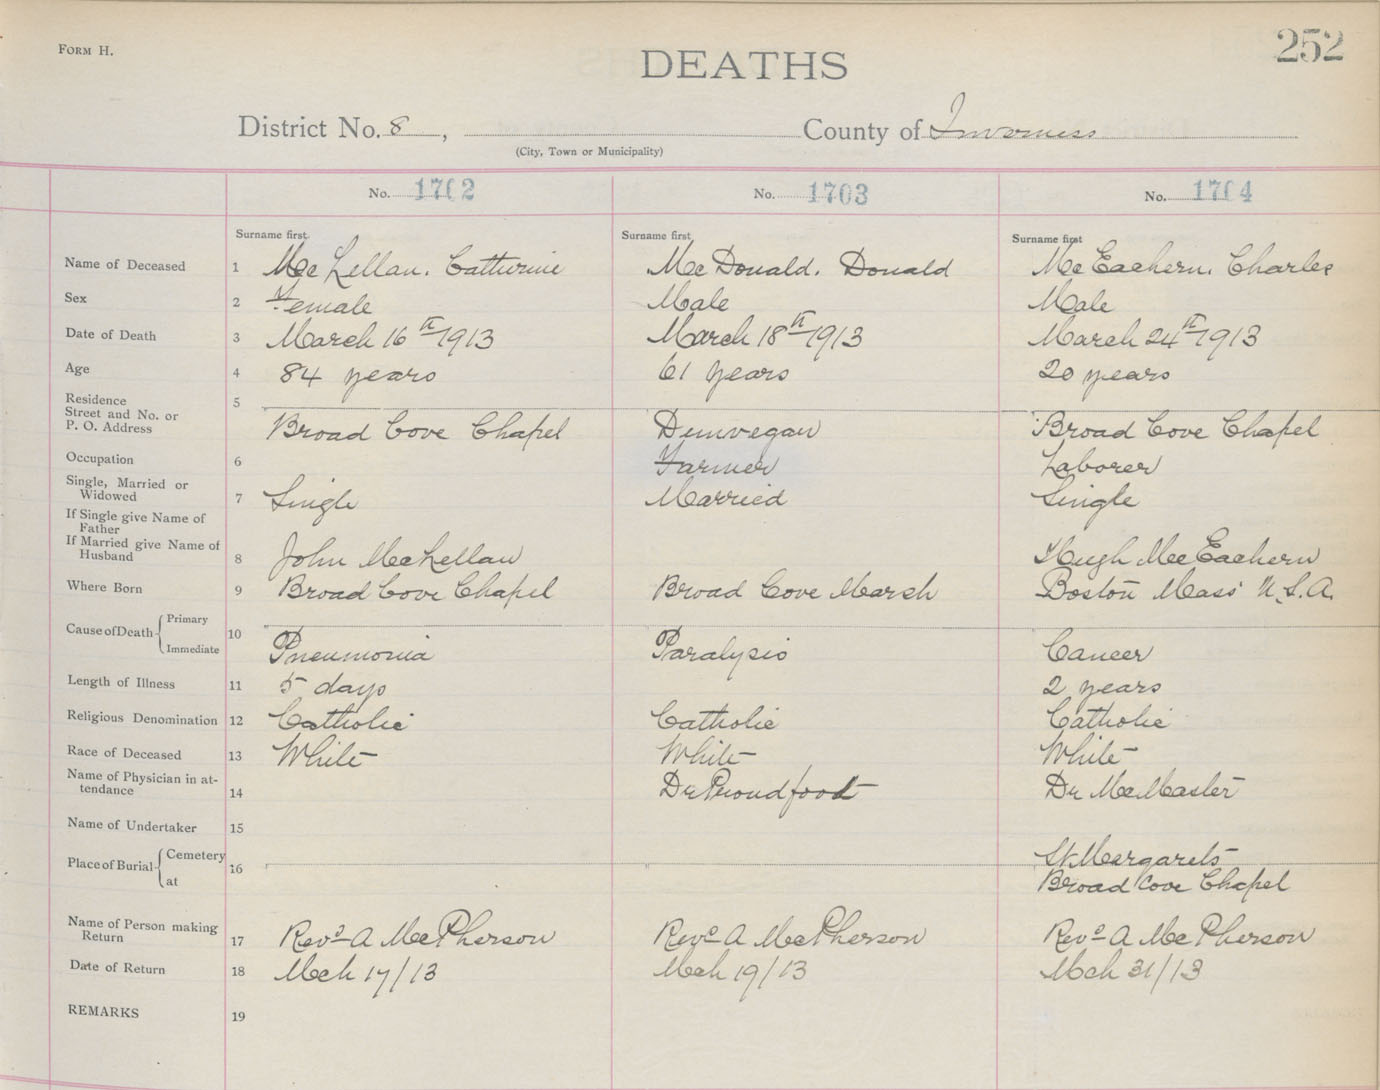 FORM H.
252
DEATHS
District No. 8, County of Inverness
(City, Town or Municipality)
No. 1702 No. 1703 No. 1704
Surname first. Surname first Surname first
Name of Deceased 1 McLellan. Catherine McDonald. Donald McEachern. Charles
Sex 2 Female Male Male
Date of Death 3 March 16th 1913 March 18th 1913 March 24th 1913
Age 4 84 years 61 years 20 years
Residence 5
Street and No. or
P. O. Address Broad Cove Chapel Dunvegan Broad Cove Chapel
Occupation 6 Farmer Laborer
Single, Married or
Widowed 7 Single Married Single
If Single give Name of
Father
If Married give Name of
Husband 8 John MacLellan Hugh MacEachern
Where Born 9 Broad Cove Chapel Broad Cove Marsh Boston Mass U.S.A.
Cause of Death Primary 10
Immediate Pneumonia Paralysis Cancer
Length of Illness 11 5 days 2 years
Religious Denomination 12 Catholic Catholic Catholic
Race of Deceased 13 White White White
Name of Physician in at-
tendance 14 Dr Proudfoot Dr McMaster
Name of Undertaker 15
Place of Burial Cemetery 16 St. Margarets
at Broad Cove Chapel
Name of Person making
Return 17 Revd A MacPherson Revd A MacPherson Revd A MacPherson
Date of Return 18 Mch 17/13 Mch 19/13 Mch 31/13
REMARKS 19